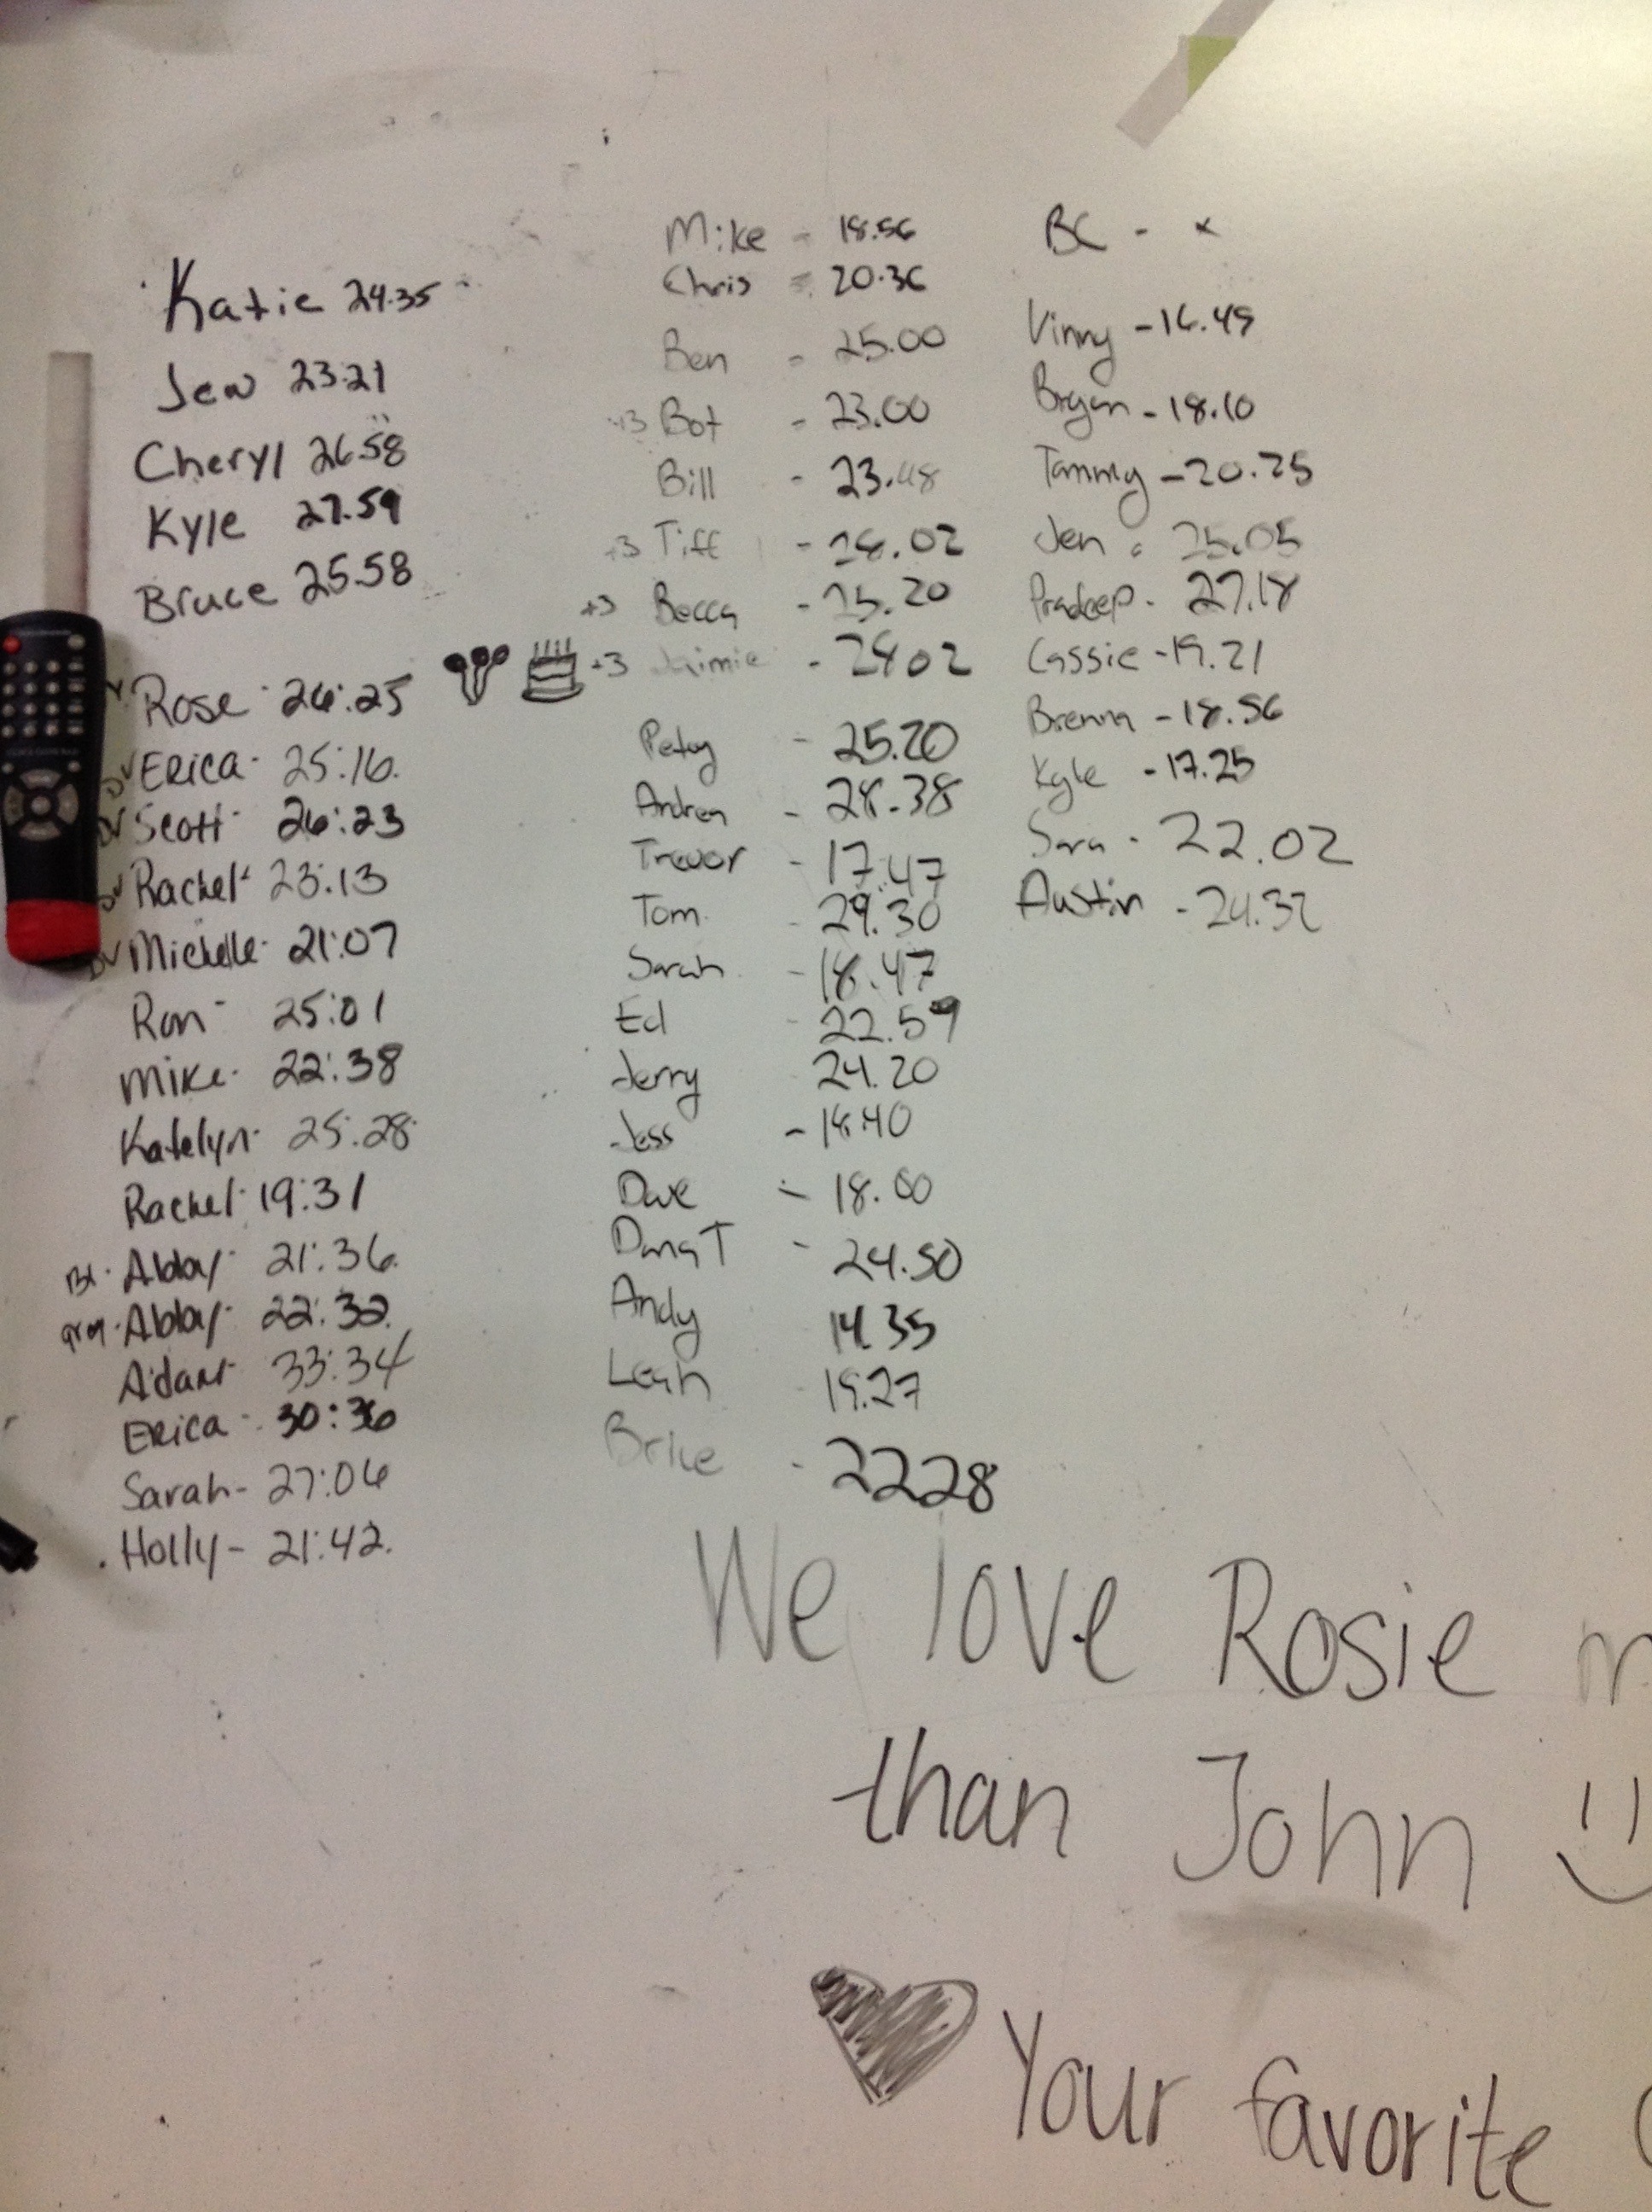 Katie 24.35
Jen 23.21
Cheryl 26.58
Kyle 27.59
Bruce 25.58
Rose - 26:25
Erica - 25:16.
Scott - 26:23
Rachel - 23:13
Michelle - 21:07
Ron - 25:01
Mike - 22:38
Katelyn - 25:28
Rachel - 19:31
Abby - 21:36.
Abby - 22:32.
Adam - 33:34
Erica - 30:36
Sarah - 27:06
Holly - 21:42.
Mike - 18.56
Chris - 20.36
Ben - 25.00
+3 Bot - 23.00
Bill - 23.48
+3 Tiff - 28.02
+3 Becca - 25.20
+3 Jaimie - 29.02
- 25.20
Andrea - 28.38
Trevor - 17.47
Tom - 29.30
Sarah - 18.47
Ed - 22.59
Jerry 24.20
Jess - 18.40
Dave - 18.00
Dana T - 24.50
Andy 14.35
Leah 19.27
Brice - 22 28
BC - x
Vinny - 16.49
Bryan - 18.10
Tammy - 20.25
Jen - 25.05
Pradeep - 27.18
Cassie - 19.21
Brenna - 18.56
Kyle - 17.25
Sara - 22.02
Austin - 24.32
We love Rosie
than John
Your favorite